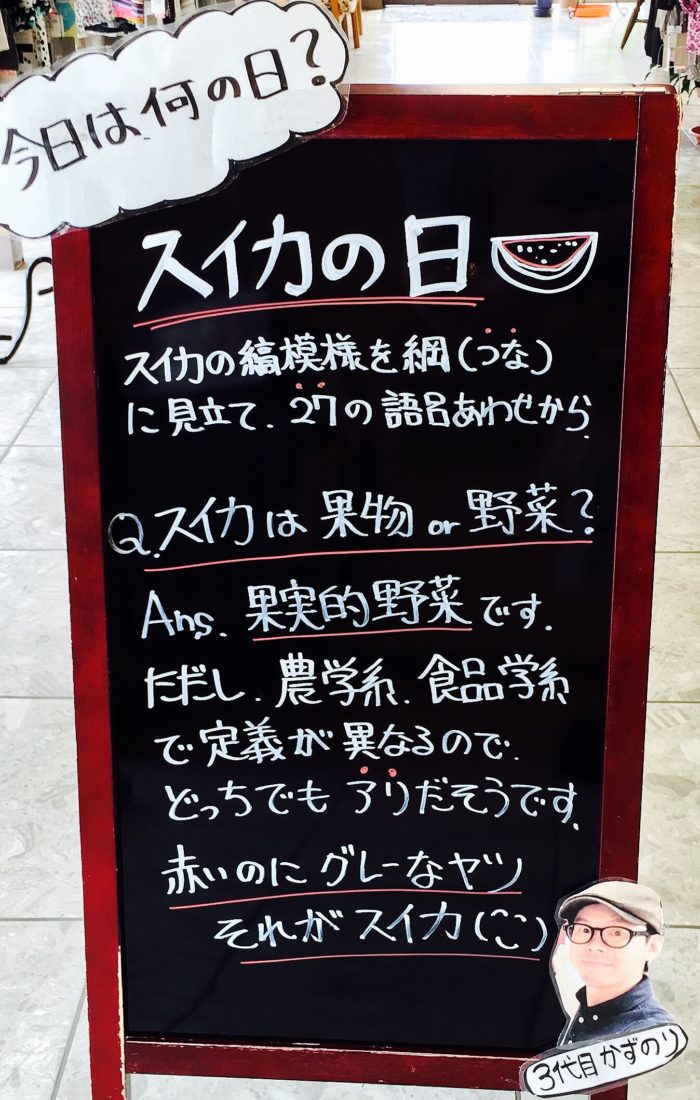 今日は何の日?
スイカの日
スイカの縞模様を綱(つな)
に見立て、27の語呂あわせから。
Q.スイカは果物or野菜?
Ans. 果実的野菜です。
ただし、農学系、食品学系
で定義が異なるので、
どっちでもアリだそうです。
赤いのにグレーなヤツ
それがスイカ
3代目かずのり